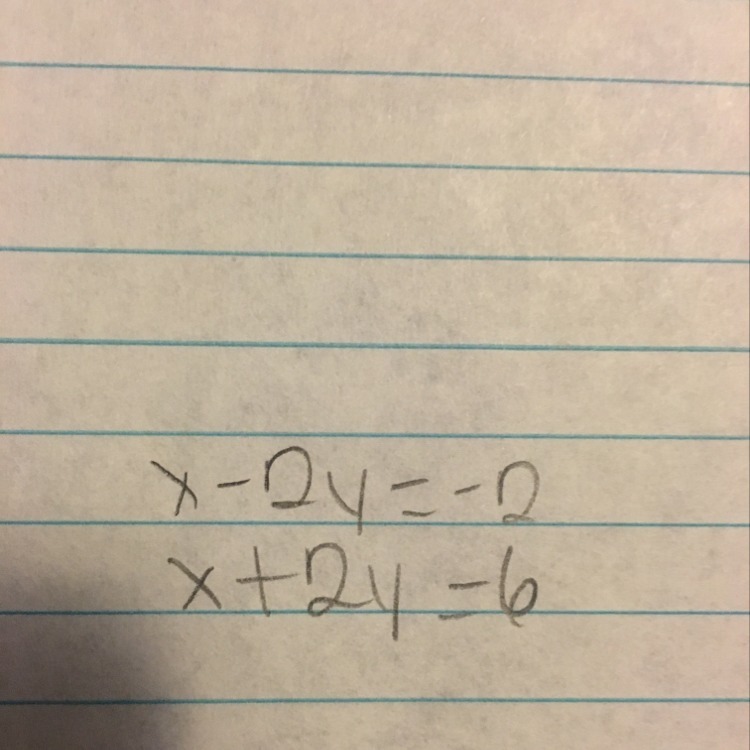 x-2y=-2
x+2y=6